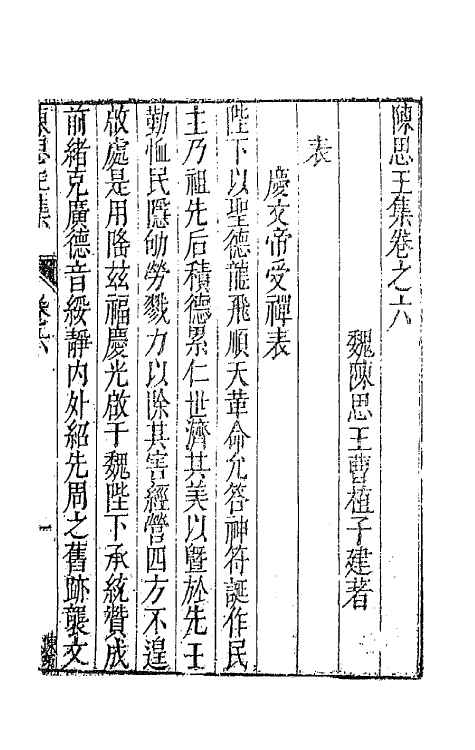 陳思王集卷之六
魏陳思王曹植子建著
表
慶文帝受禪表
陛下以聖德龍飛順天革命允答神符誕作民
主乃祖先后積德累仁世濟其美以曁於先王
勤恤民隱劬勞戮力以除其害經營四方不遑
啟處是用隆兹福慶光啟于魏陛下承統贊成
前緒克廣德音綏靜内外紹先周之舊跡襲文
陳思王集
卷之六
一